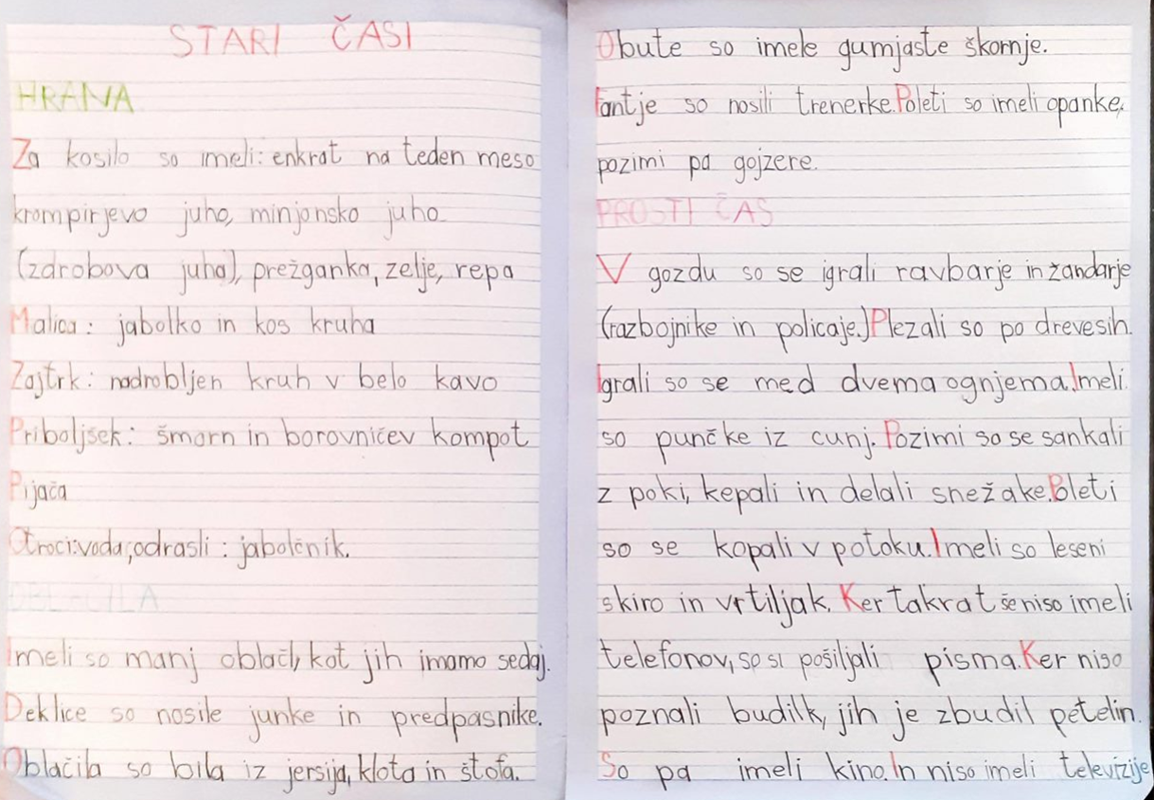 STARI ČASI
HRANA
Za kosilo so imeli: enkrat na teden meso
krompirjevo juho, minjonsko juho
(zdrobova juha), prežganka, zelje, repa
Malica: jabolko in kos kruha
Zajtrk: nadrobljen kruh v belo kavo
Priboljšek: šmorn in borovničev kompot
Pijača
Otroci:voda;odrasli: jabolčnik.
OBLAČILA
Imeli so manj oblačl, kot jih imamo sedaj.
Deklice so nosile junke in predpasnike.
Oblačila so bila iz jersija, klota in štofa.
Obute so imele gumjaste škornje.
Fantje so nosili trenerke.Poleti so imeli opanke,
pozimi pa gojzere.
PROSTI ČAS
V gozdu so se igrali ravbarje in žandarje
(razbojnike in policaje.)Plezali so po drevesih.
Igrali so se med dvema ognjema.Imeli
so punčke iz cunj. Pozimi so se sankali
z poki, kepali in delali snežake.Poleti
so se kopali v potoku.Imeli so leseni
skiro in vrtiljak. Ker takrat še niso imeli
telefonov, so si pošiljali pisma.Ker niso
poznali budilk, jih je zbudil petelin.
So pa imeli kino.In niso imeli televizije